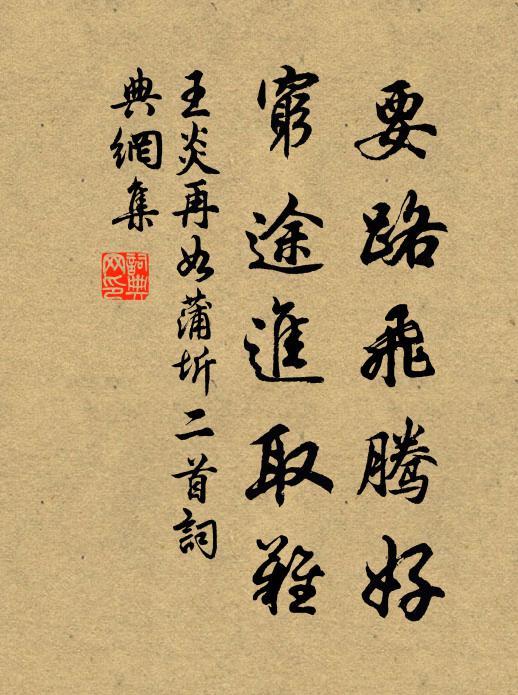 要路飛騰好
窮途進取難
王炎再如蒲圻二首詞
典網集
詞典
网印